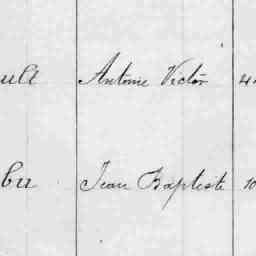 ult Antoine Victor 4
bu Jean Baptiste 10